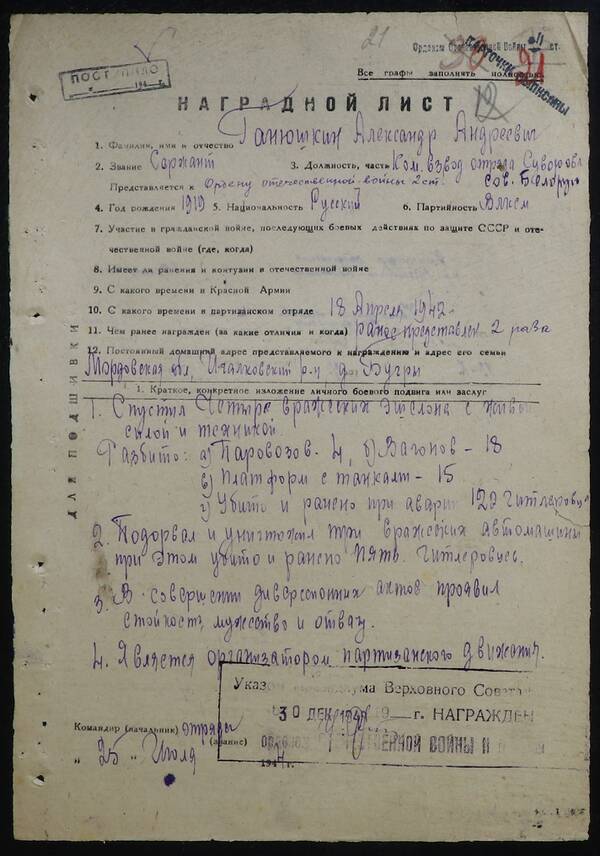 21
Орденом Отечественной Войны II ст.
30
21
Все графы заполнять полностью.
ПОСТУПИЛО
НАГРАДНОЙ ЛИСТ
12
1. Фамилия, имя и отчество Ганюшкин Александр Андреевич
2. Звание Сержант 3. Должность, часть Ком. взвод отряда Суворова
Представляется к Ордену отечественной войны 2 ст.
4. Год рождения 1919 5. Национальность Русский 6. Партийность Влксм
7. Участие в гражданской войне, последующих боевых действиях по защите СССР и оте-
чественной войне (где, когда)
8. Имеет ли ранения и контузии в отечественной войне
9. С какого времени в Красной Армии
10. С какого времени в партизанском отряде 18 Апреля 1942
11. Чем ранее награжден (за какие отличия и когда) ранее представлен 2 раза
12. Постоянный домашний адрес представляемого к награждению и адрес его семьи
Мордовская Ичалковский р-н д. Бугры
1. Краткое, конкретное изложение личного боевого подвига или заслуг
1. Спустил Четыре вражеских эшелона с живой
силой и техникой.
Разбито: а) Паровозов - 4, б) Вагонов - 18
в) Платформ с танками - 15
г) Убито и ранено при аварии 122 гитлеровца
2. Подорвал и уничтожил три вражеских автомашины
при этом убито и ранено пять гитлеровцев.
3. В совершении диверсионных актов проявил
стойкость, мужество и отвагу.
4. Является организатором партизанского движения.
Указом Верховного Совета
30 ДЕК 1948 г. НАГРАЖДЕН
ОТЕЧЕСТВЕННОЙ ВОЙНЫ II
Командир (начальник) отряда
(звание)
„ 25 " Июля 1944 г.
ДЛЯ ПОДШИВКИ